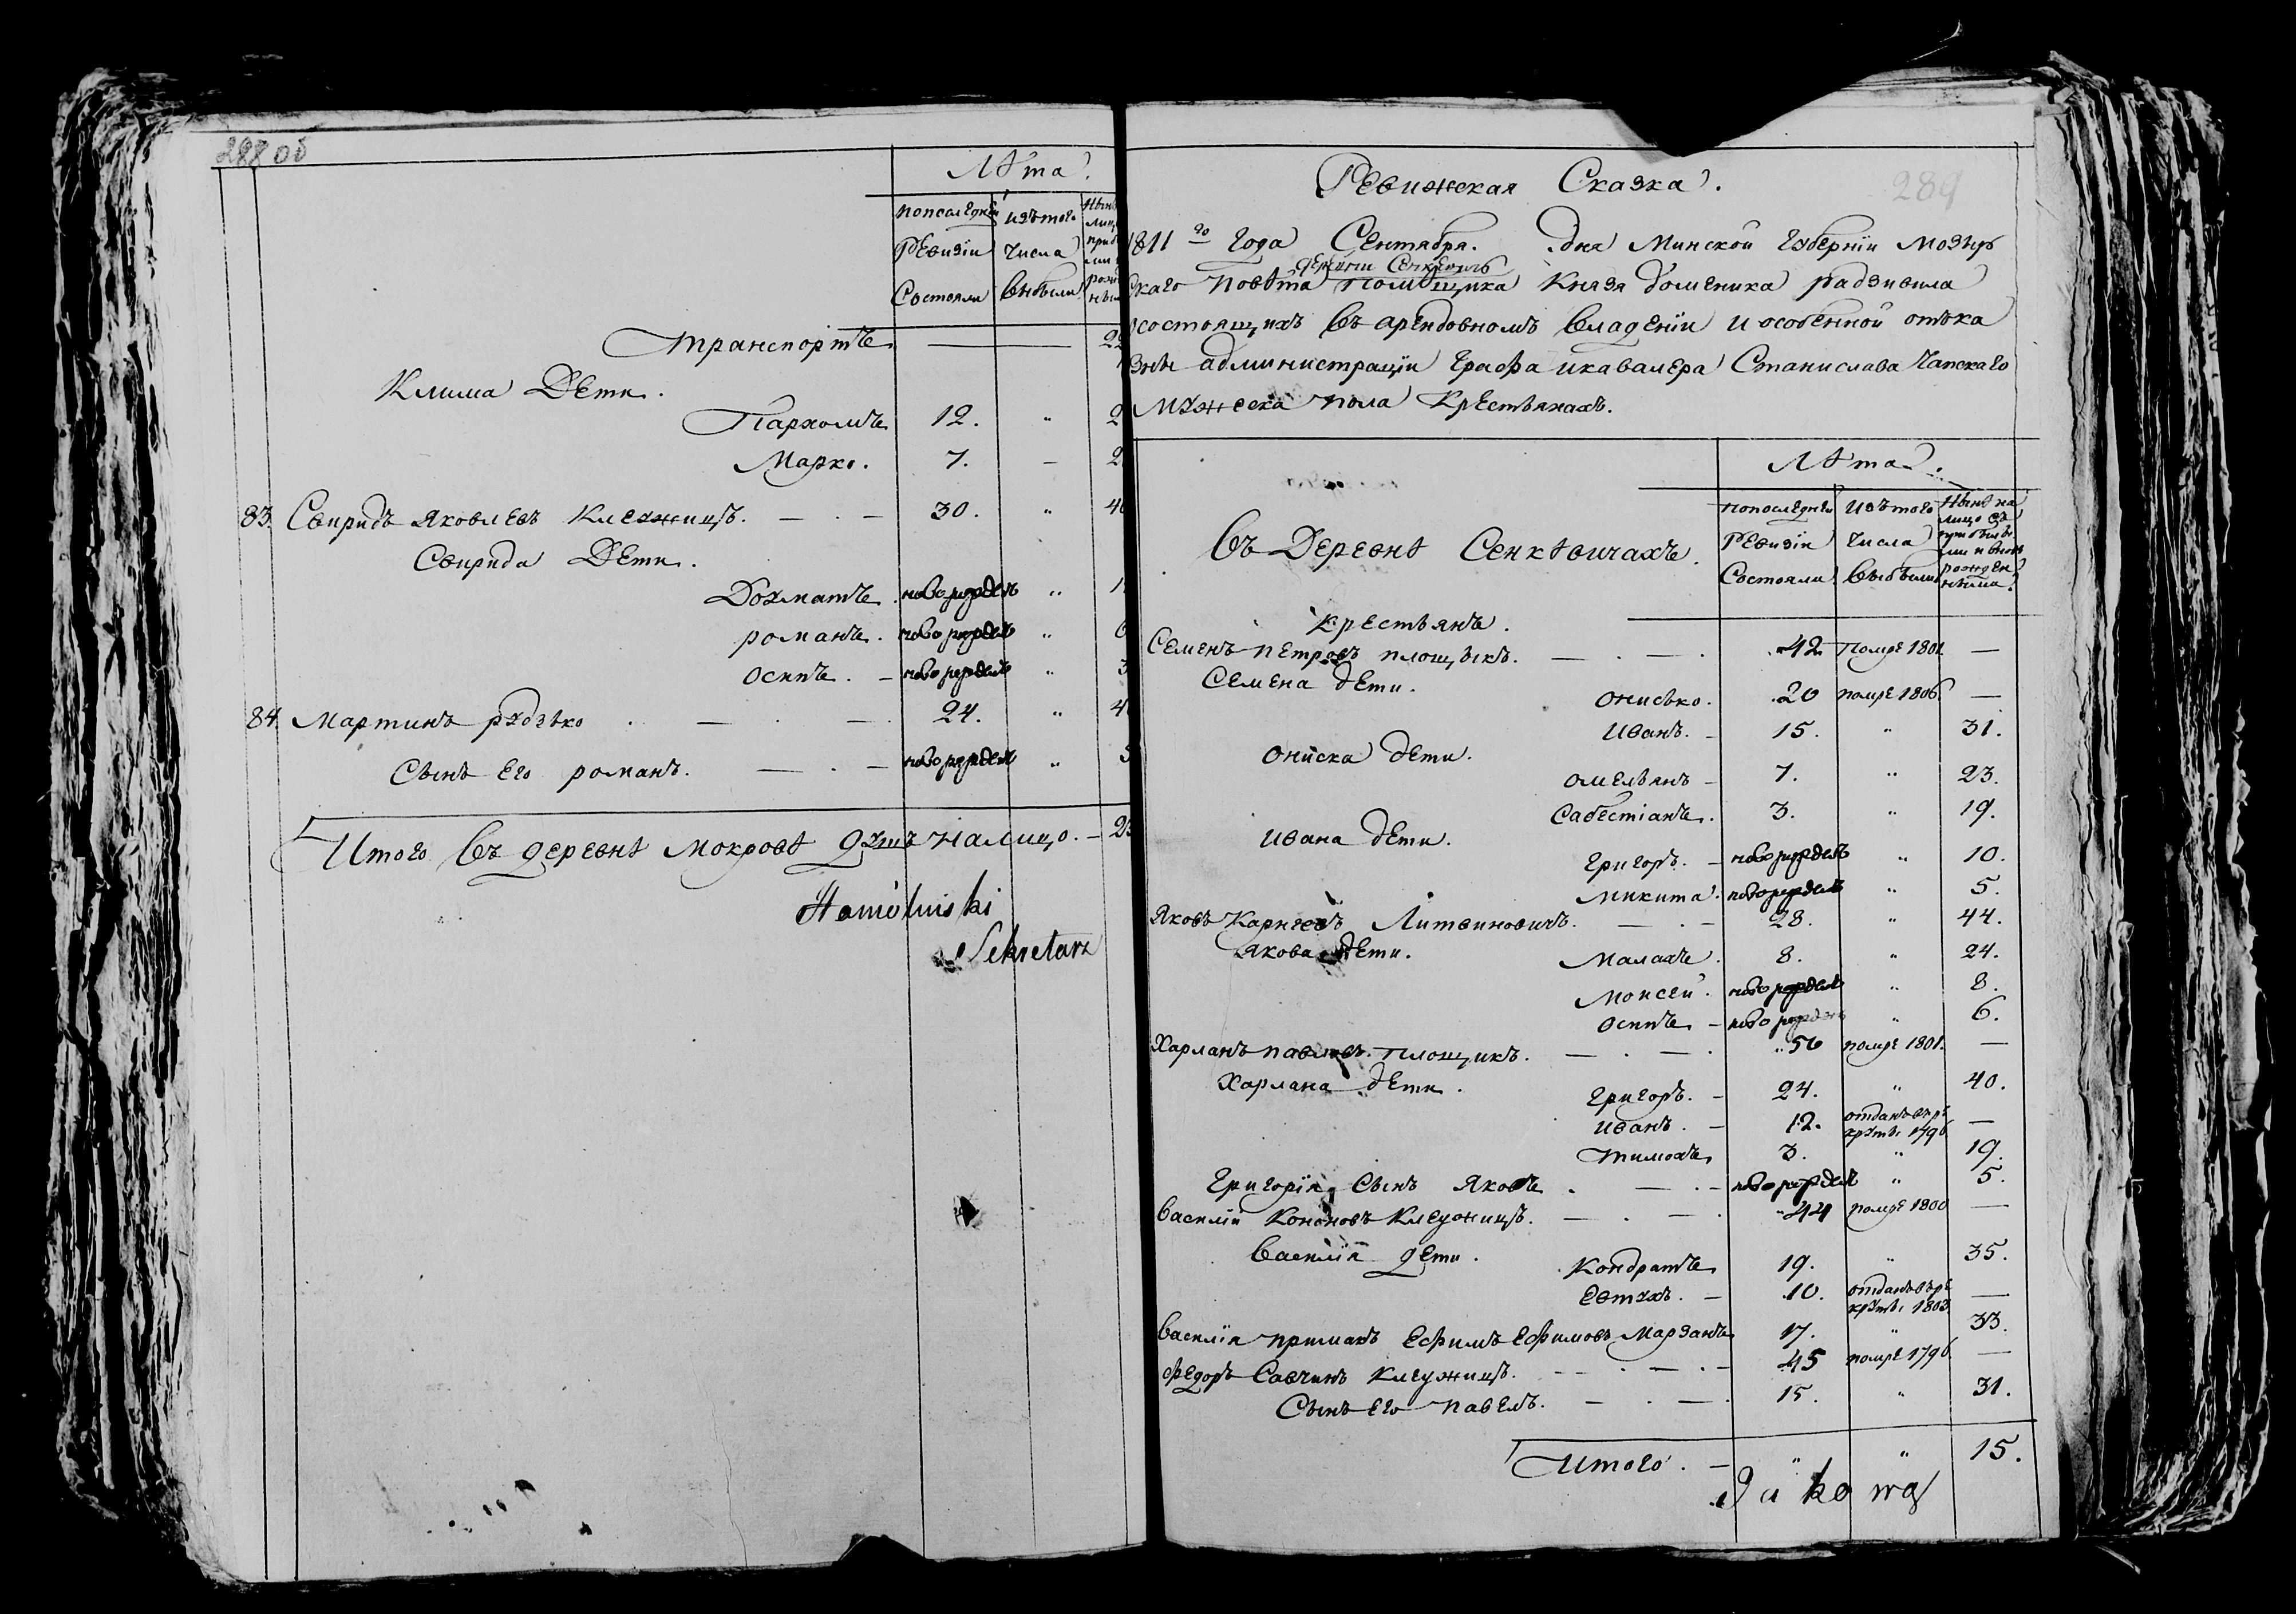 288 об
Лѣта.
попослѣдней
Ревизіи
Состояли
изътого
Числа
выбыли
Транспортъ
Клима Дети.
Пархомъ 12. „ 2
Марко. 7. – 2
83. Свиридъ Яковлевъ Клеуницъ. — . — 30. „ 4
Свирида Дети.
Дохматъ. новорожденъ „ 1
романъ. новорожденъ „
осипъ. – новорожденъ „ 3
84. Мартинъ рудзько . — . — 24. „ 4
Сынъ Его романъ. — . — новорожденъ „
Итого въ деревнѣ Мокровѣ душъ налицо. – 2
Sekretarz
289
Ревижская Сказка.
1811го Года Сентября. дня Минской Губерніи Мозыр
деревни Сенкевичъ
скаго Повѣта Помѣщика Князя Доменика радзивила
состоящихъ въ арендовномъ владеніи и особенной отъка
знѣ администраціи Графа икавалера Станислава Чапскаго
Мужеска пола Крестьянахъ.
Лѣта.
въ Деревнѣ Сенкѣвичахъ.
попоследней
Ревизіи
Состояли
Изътого
Числа
выбыли
Нынѣ на
лицо съ
ли и вновь
рожден
ными
Крестьянъ.
Семенъ петровъ площыкъ. — . — . 42 Помре 1801 —
Семена дети.
онисько. 20 помре 1806 —
Иванъ. – 15. „ 31.
Ониска дети.
омельянъ – 7. „ 23.
Сабестіанъ. 3. „ 19.
Ивана дети.
Григоръ. – новорожденъ „ 10.
Микита. новорожденъ „ 5.
Яковъ Карнеевъ Литвиновичъ. — . – 28. „ 44.
Якова дети.
Малахъ. 8. „ 24.
Моисей. новорожденъ „ 8.
осипъ – новорожденъ „ 6.
Харланъ павловъ площикъ. — . — . 56 помре 1801. —
Харлана дети.
Григоръ. – 24. „ 40.
Иванъ. – 12. отданъ въ ре
круты 1796 —
Тимохъ 3. „ 19.
Григорія Сынъ Яковъ . — . – новорожденъ „ 5.
Василій Кононовъ Клеуницъ. — . — . 44 помре 1800 —
Василія дети.
Кондратъ 19. „ 35.
Евтухъ. – 10. отданъ въ ре
круты 1803 —
Василія примакъ Ефимъ Ефимовъ Марзанъ 17. „ 33.
Федоръ Савчинъ Клеуницъ. – . — . – 45 помре 1796 —
Сынъ его павелъ. — . — . 15. „ 31.
Итого. – „ „ 15.